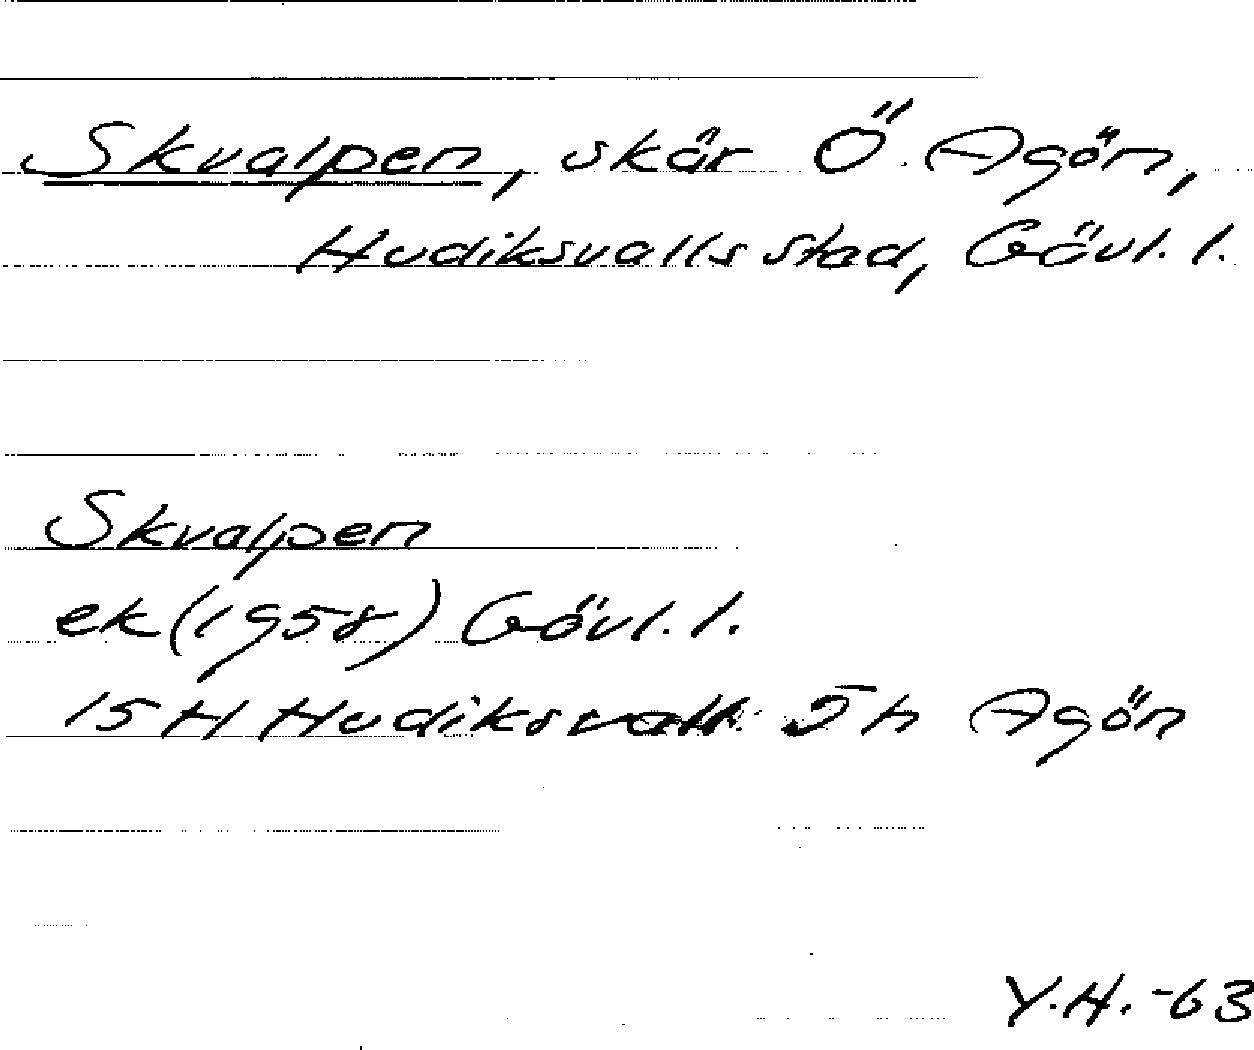 Skvalpen, skär Ö. Agön,
Hudiksvalls stad, Gävl. l.
Skvalpen
ek (1958) Gävl. l.
15 H Hudiksvall 5 h Agön
Y.H. -63